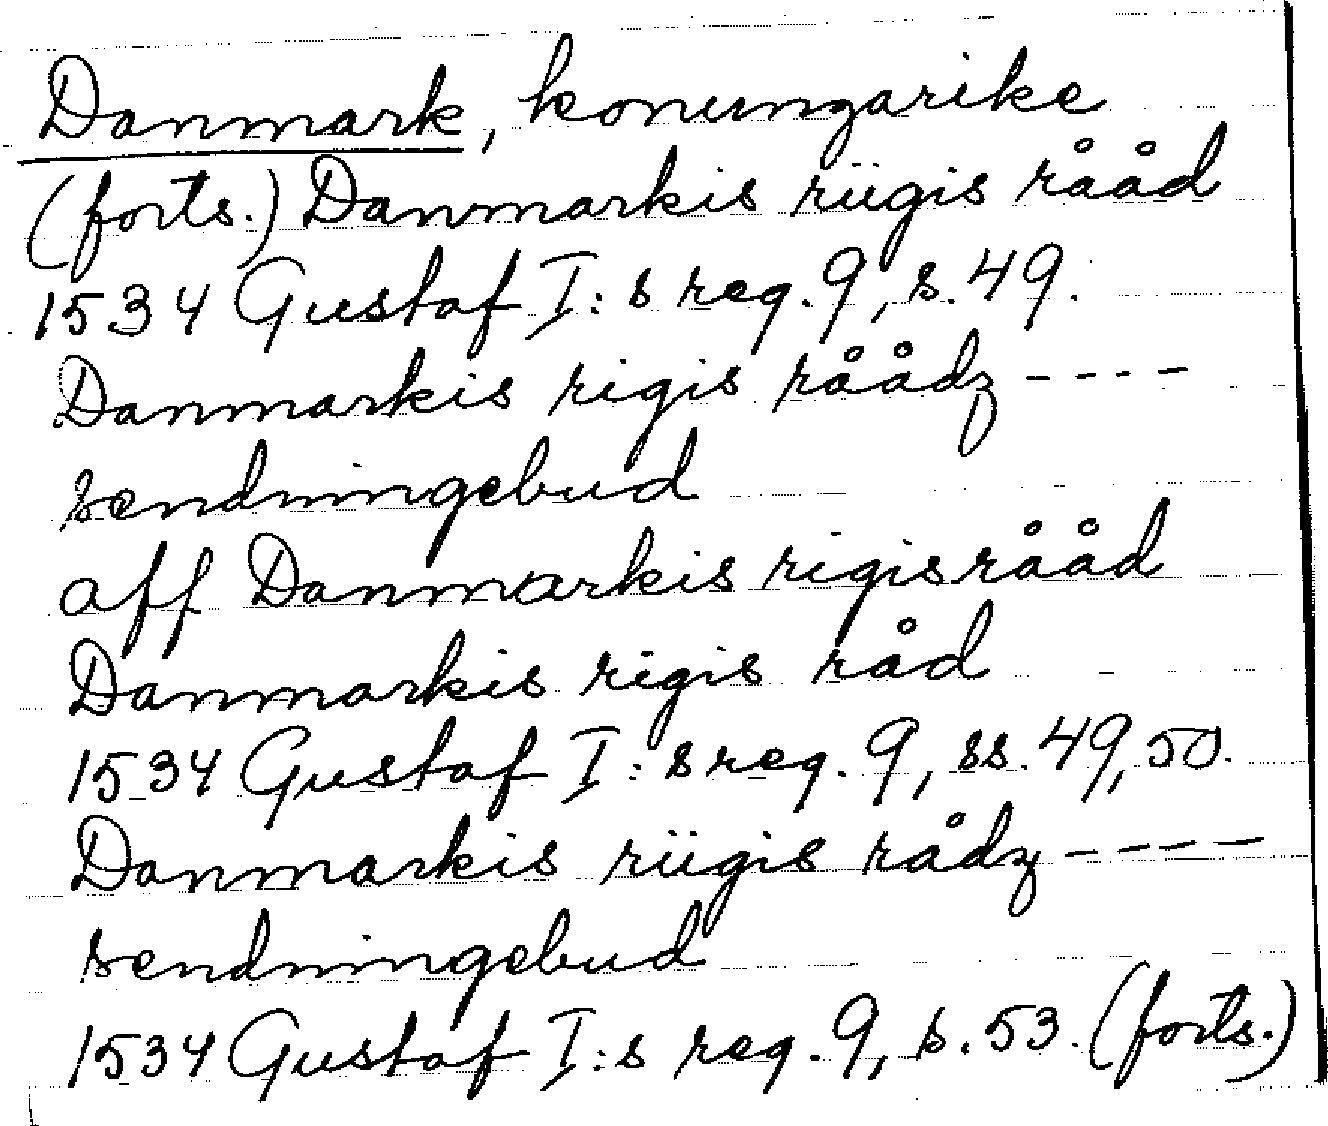 Danmark, konungarike
(forts.) Danmarkis riigis rååd
1534 Gustaf I:s reg. 9, s. 49.
Danmarkis rigis råådz ----
sendningebud
aff Danmarkis rigis rååd
Danmarkis rigis råd
1534 Gustaf I:s reg. 9, ss. 49, 50.
Danmarkis riigis rådz ----
sendningebud
1534 Gustaf I:s reg. 9, s. 53. (forts.)